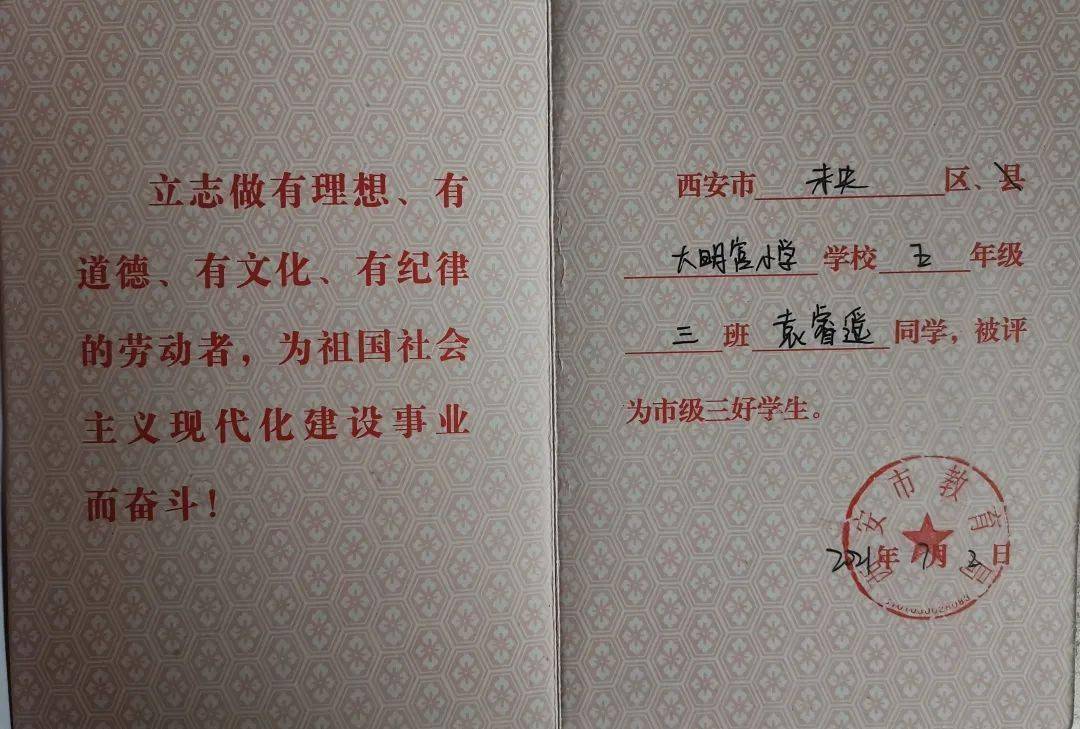 立志做有理想、有
道德、有文化、有纪律
的劳动者，为祖国社会
主义现代化建设事业
而奋斗！
西安市 未央 区、县
大明宫小学 学校 五 年级
三 班 袁睿遥 同学，被评
为市级三好学生。
西安市教育局
2021年7月2日